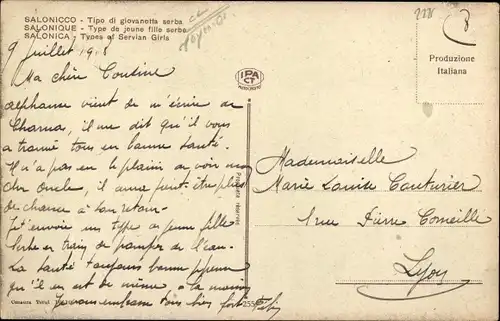 SALONICCO - Tipo di giovanetta serba
SALONIQUE - Type de jeune fille serbe
SALONICA - Types of Servian Girls
IPA
CT
Produzione
Italiana
9 Juillet 1918
Ma chère Cousine
Alphonse vient de m'écrire de
il me dit qu'il vous
a trouvé tous en bonne santé.
Il n'a pas eu le plaisir de voir mon
cher Oncle, il aura peut-être plus
de chance à son retour.
Je t'envoie un type de jeune fille
Serbe en train de pomper de l'eau.
La santé toujours bonne
qu'il en est de même à la maison
Je vous embrasse tous bien fort
Proprietà riservata
Mademoiselle
Marie Louise Couturier
1 rue Pierre Corneille
Lyon